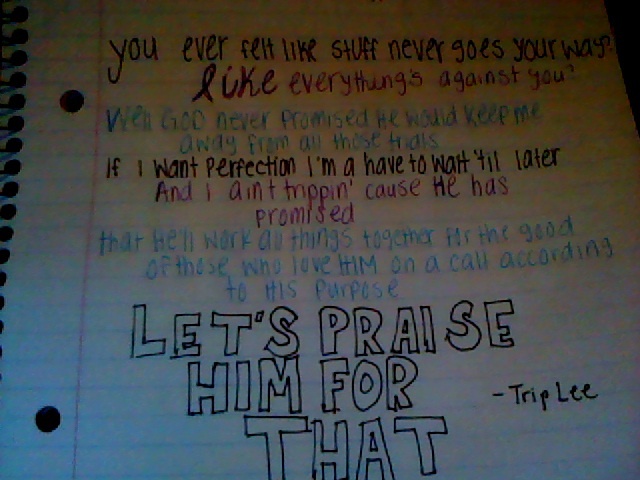 you ever felt like stuff never goes your way?
like everything's against you?
Well GOD never promised He would keep me
away from all those trials
If I want perfection I'm a have to wait 'til later
And I ain't trippin' cause He has
promised
that He'll work all things together for the good
of those who love HIM on a call according
to His purpose
LET'S PRAISE
HIM FOR
THAT
- Trip Lee